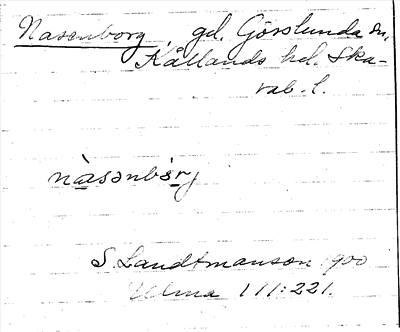 Nasenborg, gd, Görslunda sn,
Kållands hd. Ska-
rab. l.
nàsənbǒrj
S. Landtmanson 1900
Ulma 111:221.